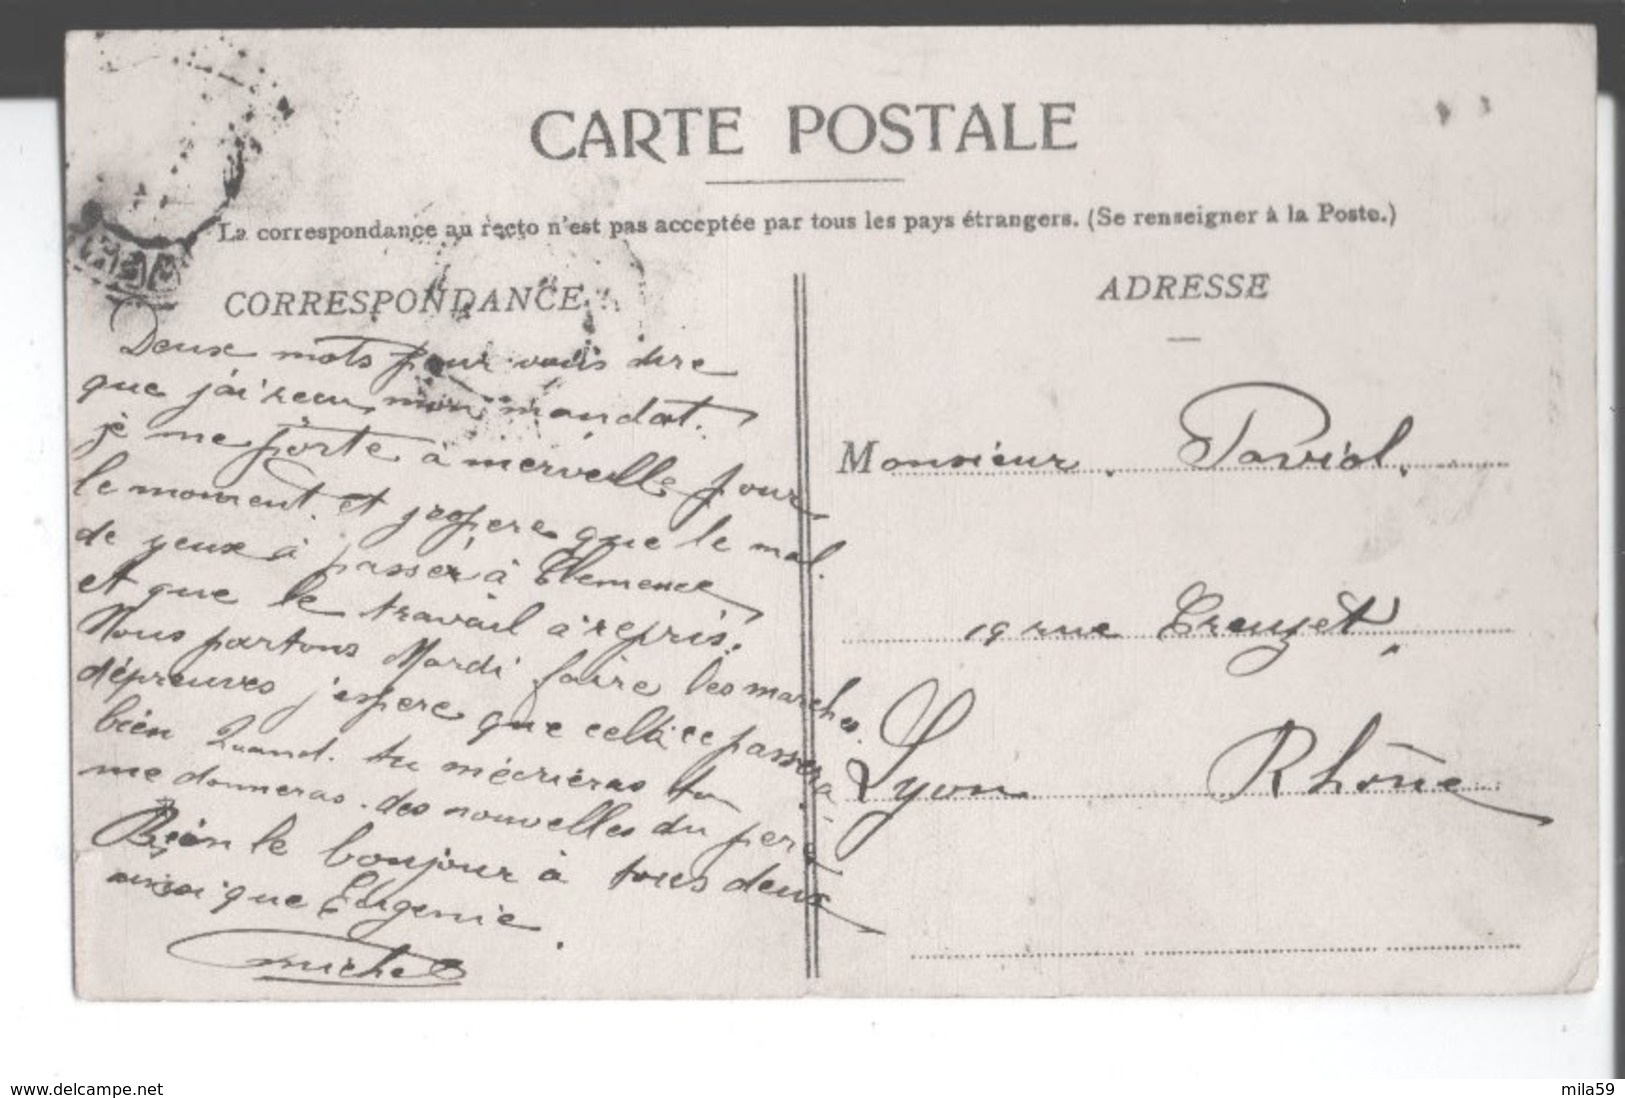 CARTE POSTALE
La correspondance au recto n'est pas acceptée par tous les pays étrangers. (Se renseigner à la Poste.)
CORRESPONDANCE
Deux mots pour vous dire
que j'ai recu mon mandat.
je me porte à merveille pour
le moment. et j'espere que le mal
de yeux à passér à Clemence
et que le travail à repris.
Nous partons Mardi faire les marches
dépreuves j'espere que cella ce passera
bien Quand. tu mécriéras tu
me donneras. des nouvelles du pere
Bien le bonjour à tous deux
ainsi que Eugenie.
Michel
ADRESSE
Monsieur. Paviol.
19 rue Creuzet
Lyon Rhône
www.delcampe.net
mila59